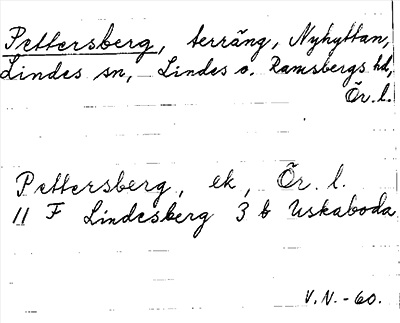 Pettersberg, terräng, Nyhyttan,
Lindes sn, Lindes o. Ramsbergs hd,
Ör. l.
Pettersberg, ek, Ör. l.
11 F Lindesberg 3 b Uskaboda
V.N. -60.